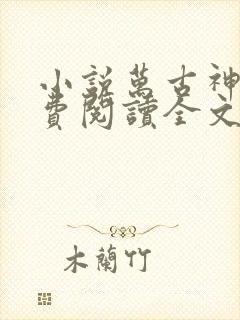 小說萬古神
費閱讀全文
木蘭竹